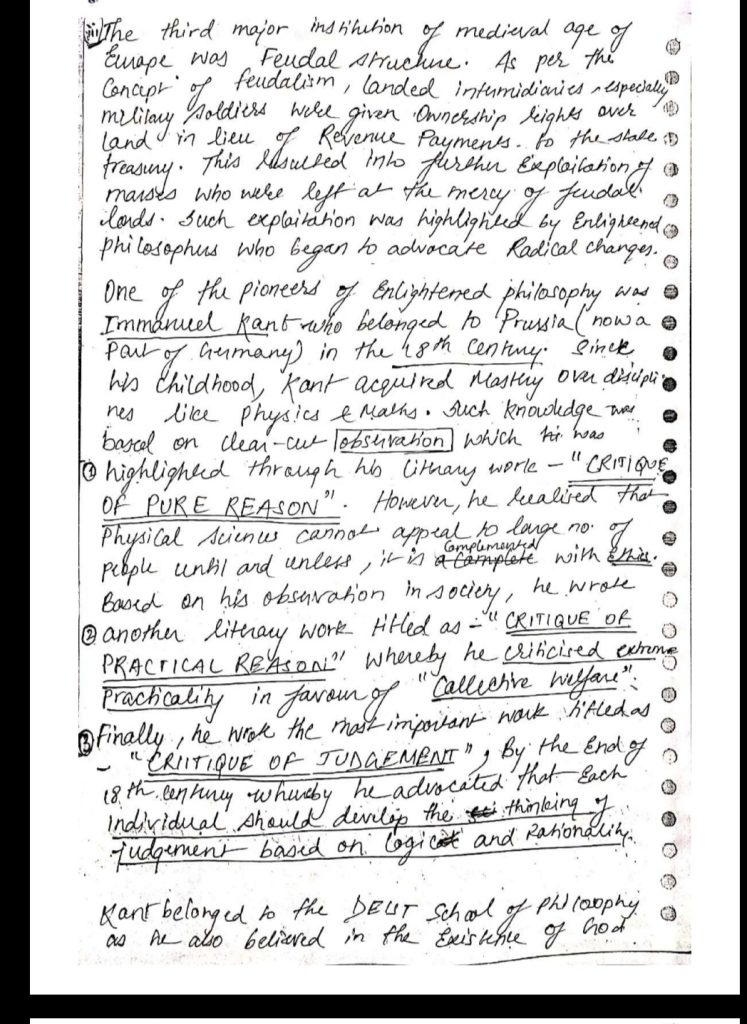 iii) The third major institution of medieval age of
Europe was Feudal structure. As per the
Concept of feudalism, landed intermidiaries, especially
military soldiers were given Ownership rights over
land in lieu of Revenue Payments. to the state
treasury. This resulted into further Exploitation of
masses who were left at the mercy of feudal
lords. Such exploitation was highlighted by Enlightened
philosophers who began to advocate Radical changes.
One of the pioneers of Enlightened philosophy was
Immanuel Kant who belonged to Prussia (now a
Part of Germany) in the 18th Century. Since
his childhood, Kant acquired Mastery over discipli
nes like physics & Maths. Such knowledge was
based on clear-cut observation which was
① highlighted through his literary work - "CRITIQUE
OF PURE REASON". However, he realised that
Physical sciences cannot appeal to large no. of
people until and unless, it is Complemented with Ethics.
Based on his observation in society, he wrote
② another literary work titled as - "CRITIQUE OF
PRACTICAL REASON" whereby he criticised extreme
Practicality in favour of "Collective Welfare".
③ Finally, he wrote the most important work titled as
- "CRIITIQUE OF JUDGEMENT", By the End of
18th century whereby he advocated that Each
individual should develop the thinking of
judgement based on logic and Rationality.
Kant belonged to the DEIST School of philosophy
as he also believed in the Existence of God.